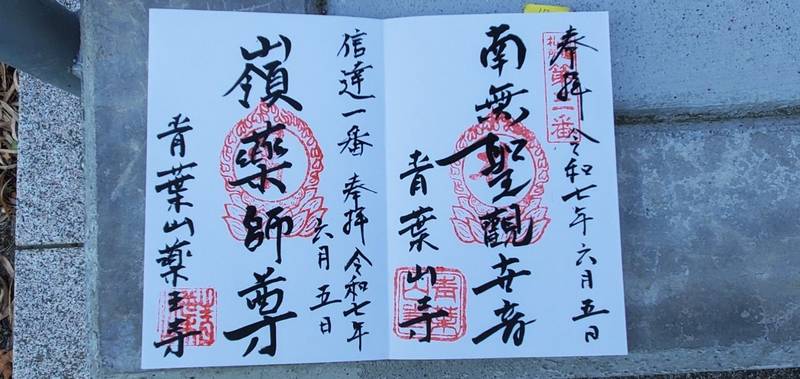 奉拝 令和七年六月五日
札所
第二番
南無聖観世音
青葉山寺
青葉山寺
信達一番 奉拝 令和七年
六月五日
嶺薬師尊
青葉山薬王寺